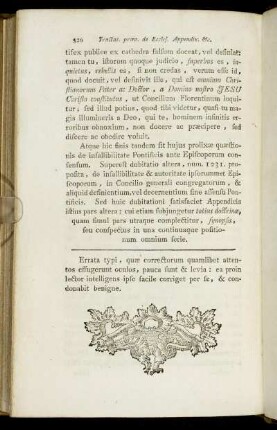 520 Tractat. prim. de Eccles. Appendix. &c.
tifex publice ex cathedra fidium doceat, vel definiat;
tamen tu, istorum quoque judicio, superbus es, in-
quietus, rebellis es, si non credas, verum esse id,
quod docuit, vel definivit ille, qui est omnium Chri-
stianorum Pater ac Doctor, a Domino nostro JESU
Christo constitutus, ut Concilium Florentinum inqui-
tur; sed illud potius, quod tibi videtur, quin tu ma-
gis illumineris a Deo, qui te, hominem infinitis er-
roribus obnoxium, non docere ac præcipere, sed
discere ac obedire voluit.
Atque hic finis tandem sit hujus prolixæ quæstio-
nis de infallibilitate Pontificis ante Episcoporum con-
sensum. Superest dubitatio altera, num. 1231. pro-
posita, de infallibilitate & autoritate ipsorummet Epi-
scoporum, in Concilio generali congregatorum, &
aliquid definientium, vel decernentium sine assensu Pon-
tificis. Sed huic dubitationi satisfaciet Appendicis
istius pars altera; cui etiam subjungetur totius doctrinæ,
quam simul pars utraque complectitur, synopsis,
seu conspectus in una continuaque positio-
num omnium serie.
Errata typi, quæ correctorum quamlibet atten-
tos effugerunt oculos, pauca sunt & levia: ea proin
lector intelligens ipse facile corriget per se, & con-
donabit benigne.